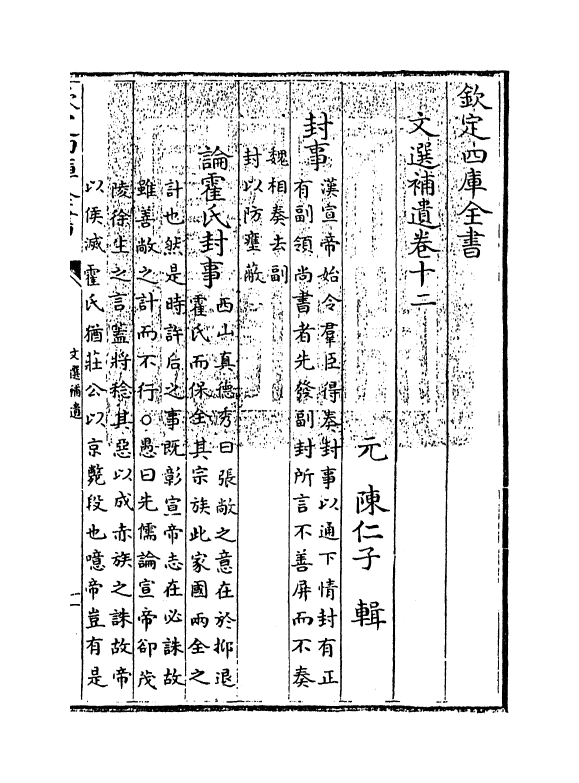 欽定四庫全書
文選補遺卷十二
元　陳仁子　輯
封事
漢宣帝始令羣臣得奏封事以通下情封有正
有副領尚書者先發副封所言不善屏而不奏
魏相奏去副
封以防壅蔽
論霍氏封事
西山真德秀曰張敞之意在於抑退
霍氏而保全其宗族此家國兩全之
計也然是時許后之事既彰宣帝志在必誅故
雖善敞之計而不行○愚曰先儒論宣帝卻茂
陵徐生之言蓋將稔其惡以成赤族之誅故帝
以侯滅霍氏猶莊公以京斃段也噫帝豈有是
文選補遺
一